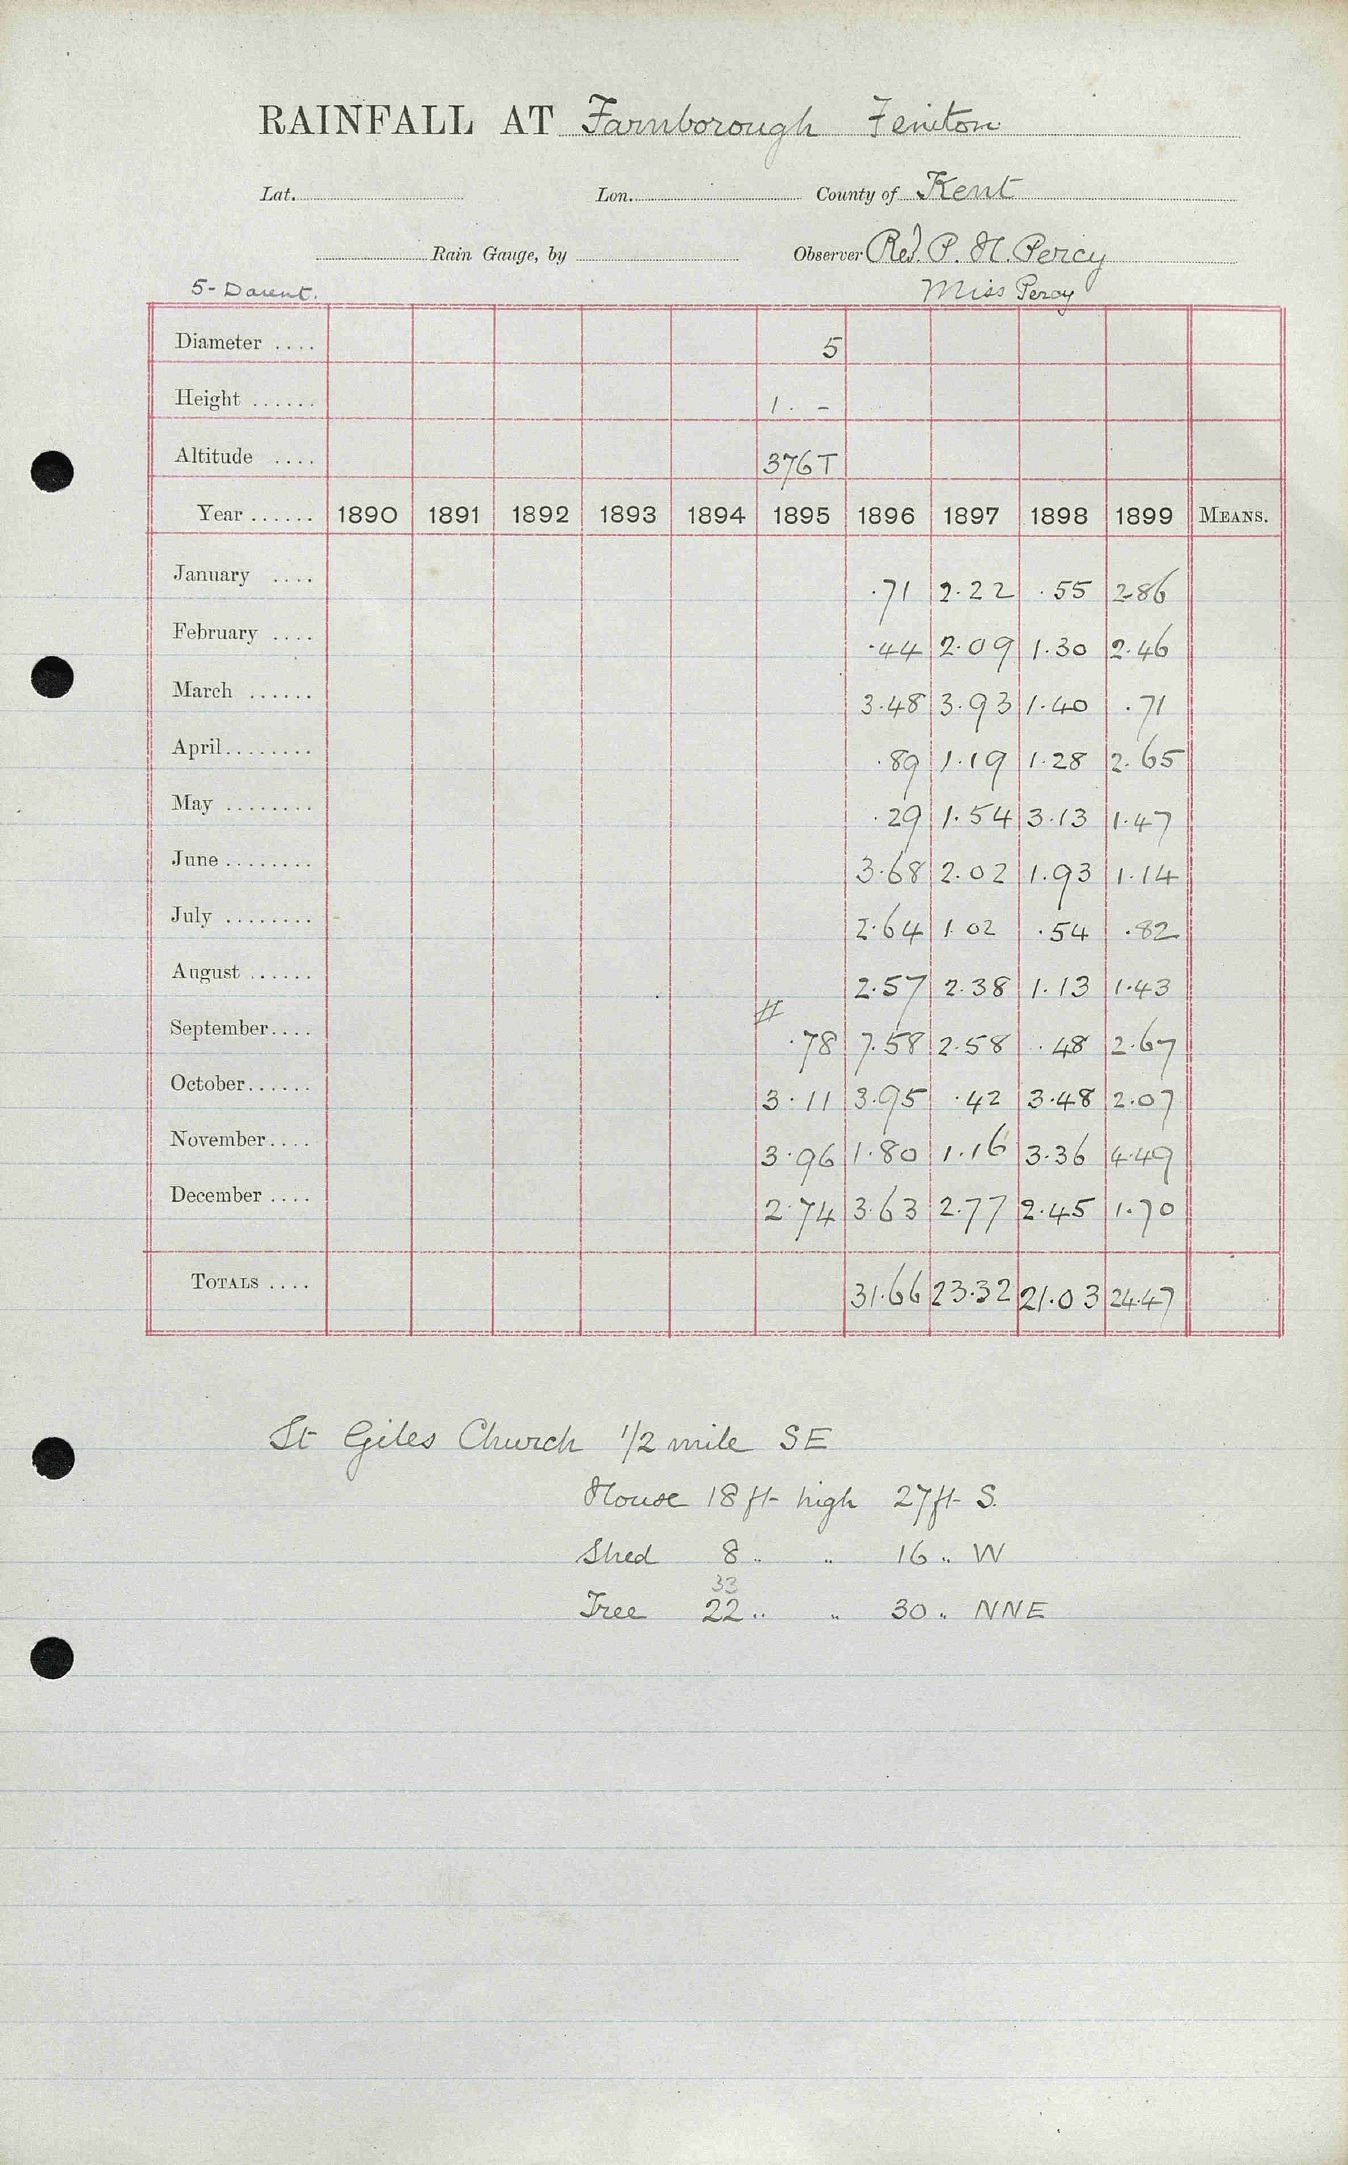 RAINFALL AT Farnborough Feniton
Lat. Lon. County of Kent
Rain Gauge, by Observer Rev. P. H. Percy
5 - Darent. Miss Percy
Diameter .... 5
Height ...... 1 . -
Altitude .... 376T
Year ...... 1890 1891 1892 1893 1894 1895 1896 1897 1898 1899 MEANS.
January .... .71 2.22 .55 2.86
February .... .44 2.09 1.30 2.46
March ...... 3.48 3.93 1.40 .71
April........ .89 1.19 1.28 2.65
May ........ .29 1.54 3.13 1.47
June ........ 3.68 2.02 1.93 1.14
July ........ 2.64 1.02 .54 .82
August ...... 2.57 2.38 1.13 1.43
September.... # .78 7.58 2.58 .48 2.67
October...... 3.11 3.95 .42 3.48 2.07
November.... 3.96 1.80 1.16 3.36 4.49
December .... 2.74 3.63 2.77 2.45 1.70
TOTALS .... 31.66 23.32 21.03 24.47
St Giles Church 1/2 mile SE
House 18 ft high 27 ft S.
Shed 8 " " 16 " W
33
Tree 22 " " 30 " NNE